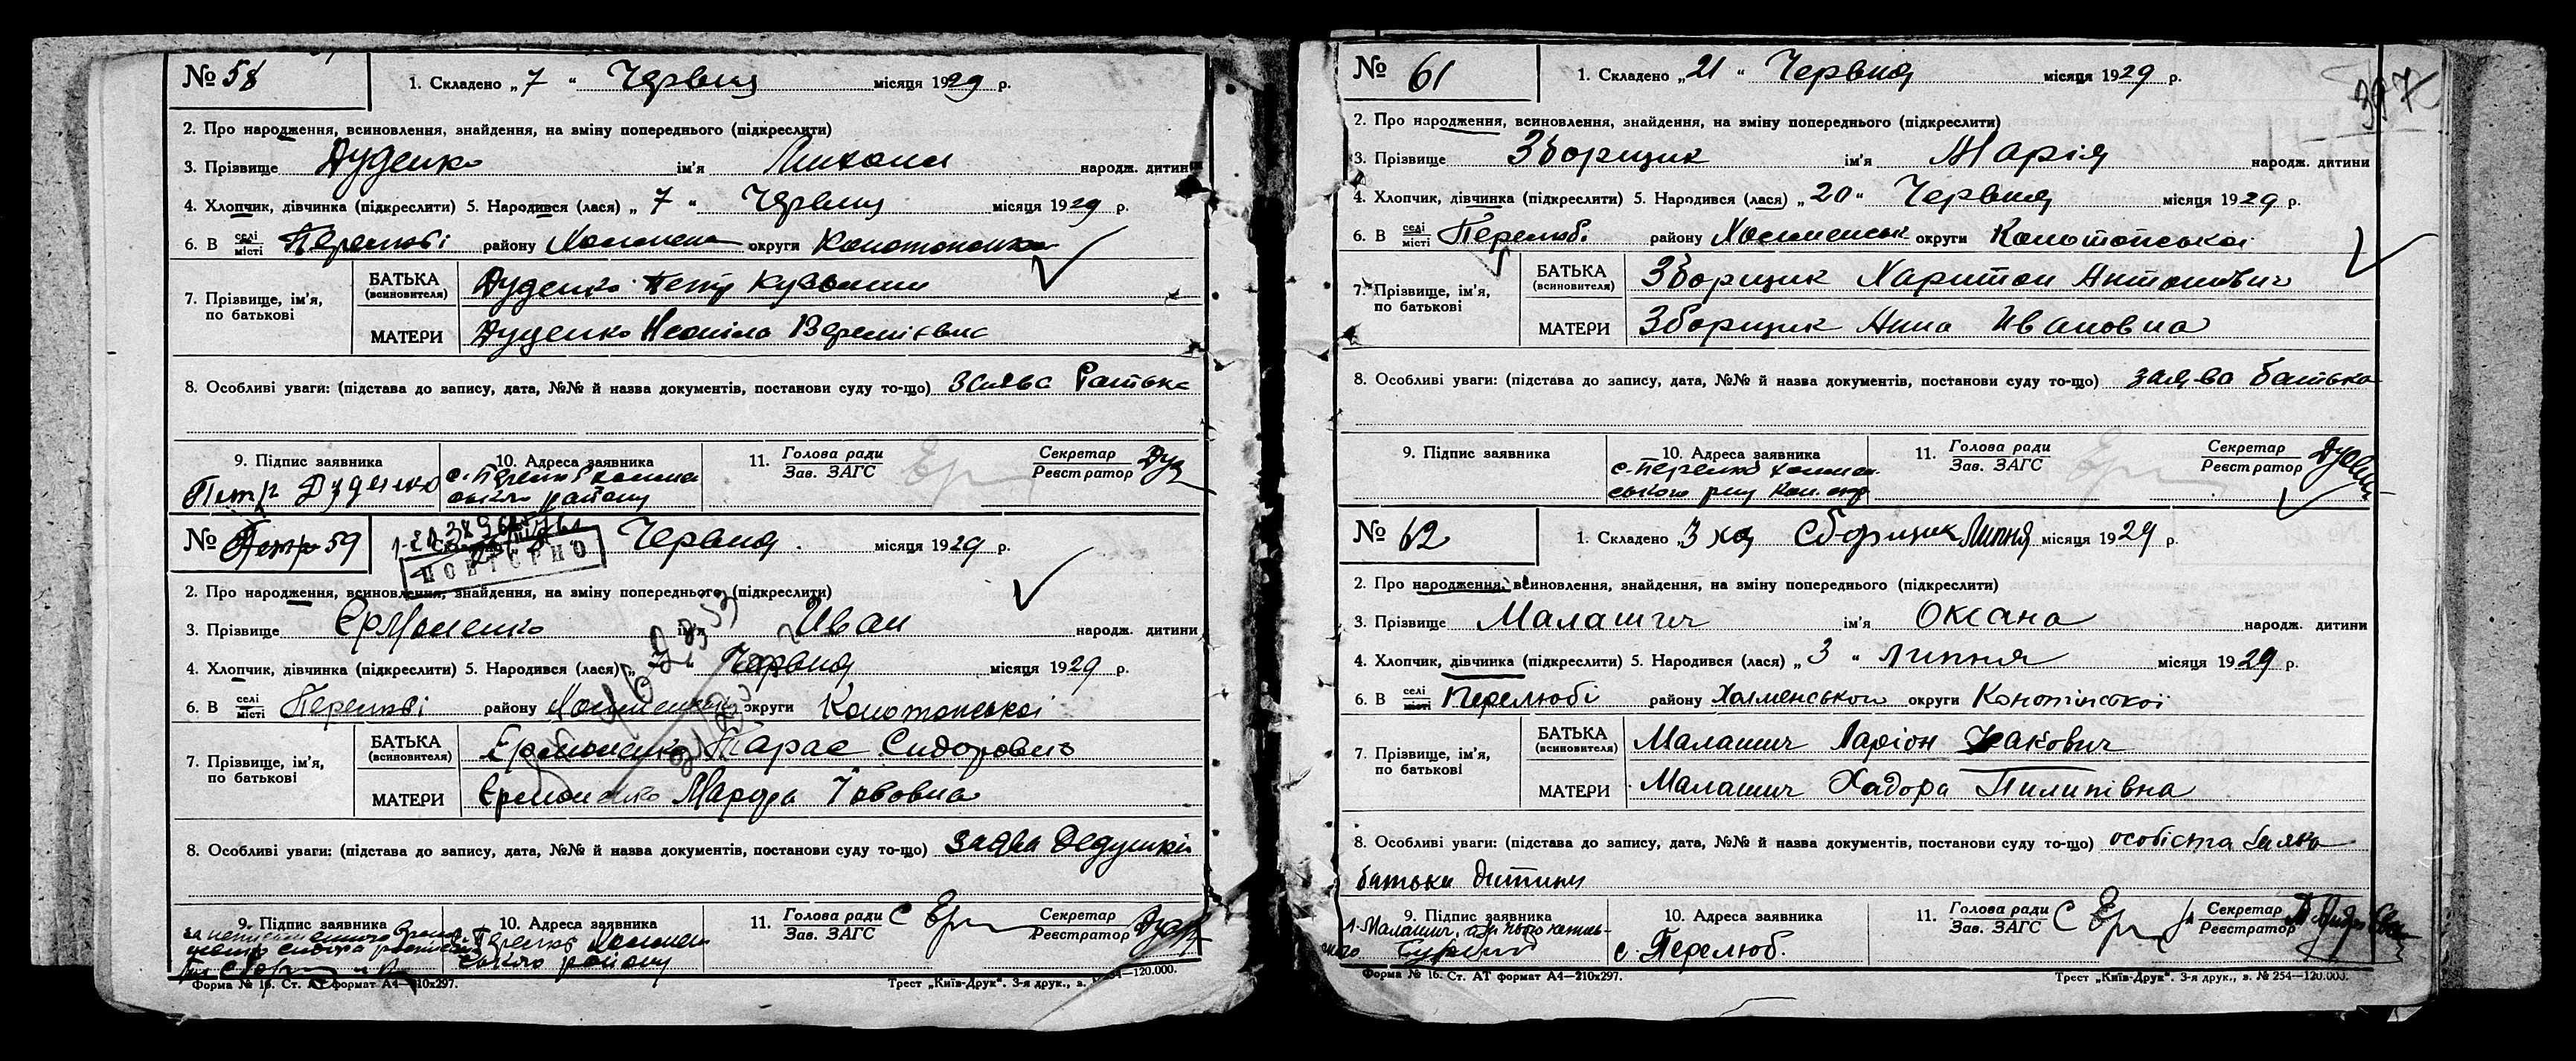 № 58
1. Складено „7“ Червня місяця 1929 р.
2. Про народження, всиновлення, знайдення, на зміну попереднього (підкреслити)
3. Прізвище Дуденко ім'я Михаил народж. дитини
4. Хлопчик, дівчинка (підкреслити) 5. Народився (лася) „7“ Червня місяця 1929 р.
6. В селі місті Перелюбі району округи
7. Прізвище, ім'я, по батькові
БАТЬКА (всиновителя) Дуденко Петр
МАТЕРИ Дуденко
8. Особливі уваги: (підстава до запису, дата, №№ й назва документів, постанови суду то-що) заява батька
9. Підпис заявника
Петр Дуденко
10. Адреса заявника
району
11. Голова ради
Зав. ЗАГС
Секретар
Реєстратор
№ 59
Червня місяця 1929 р.
ПОВТОРНО
2. Про народження, всиновлення, знайдення, на зміну попереднього (підкреслити)
3. Прізвище Єрмоленко ім'я Иван народж. дитини
4. Хлопчик, дівчинка (підкреслити) 5. Народився (лася) Червня місяця 1929 р.
6. В селі місті Перелюбі району округи Конотопської
7. Прізвище, ім'я, по батькові
БАТЬКА (всиновителя) Єрмоленко Тарас Сидорович
МАТЕРИ Єрмоленко Марфа
8. Особливі уваги: (підстава до запису, дата, №№ й назва документів, постанови суду то-що) заява Дедушки
9. Підпис заявника
10. Адреса заявника
ського району
11. Голова ради
Зав. ЗАГС
Секретар
Реєстратор
Форма № 16. Ст. АТ формат А4—210х297.
Трест „Київ-Друк“. 3-я друк., з. 54—120.000.
397
№ 61
1. Складено „21“ Червня місяця 1929 р.
2. Про народження, всиновлення, знайдення, на зміну попереднього (підкреслити)
3. Прізвище Зборщик ім'я Марія народж. дитини
4. Хлопчик, дівчинка (підкреслити) 5. Народився (лася) „20“ Червня місяця 1929 р.
6. В селі місті Перелюбі району Холменськ округи Конотопської
7. Прізвище, ім'я, по батькові
БАТЬКА (всиновителя) Зборщик Харитон Антонович
МАТЕРИ Зборщик Анна Ивановна
8. Особливі уваги: (підстава до запису, дата, №№ й назва документів, постанови суду то-що) заява батька
9. Підпис заявника
10. Адреса заявника
11. Голова ради
Зав. ЗАГС
Секретар
Реєстратор
№ 62
1. Складено „3 Сборщик Липня місяця 1929 р.
2. Про народження, всиновлення, знайдення, на зміну попереднього (підкреслити)
3. Прізвище Малашич ім'я Оксана народж. дитини
4. Хлопчик, дівчинка (підкреслити) 5. Народився (лася) „3“ липня місяця 1929 р.
6. В селі місті Перелюбі району Холменського округи
7. Прізвище, ім'я, по батькові
БАТЬКА (всиновителя) Малашич Ларіон
МАТЕРИ Малашич Хадора Пилипівна
8. Особливі уваги: (підстава до запису, дата, №№ й назва документів, постанови суду то-що) особіста заява
батька дитини
9. Підпис заявника
Малашич
10. Адреса заявника
с Перелюб.
11. Голова ради
Зав. ЗАГС
Секретар
Реєстратор
Форма № 16. Ст. АТ формат А4—210х297.
Трест „Київ-Друк“. 3-я друк., з. № 254—120.000.